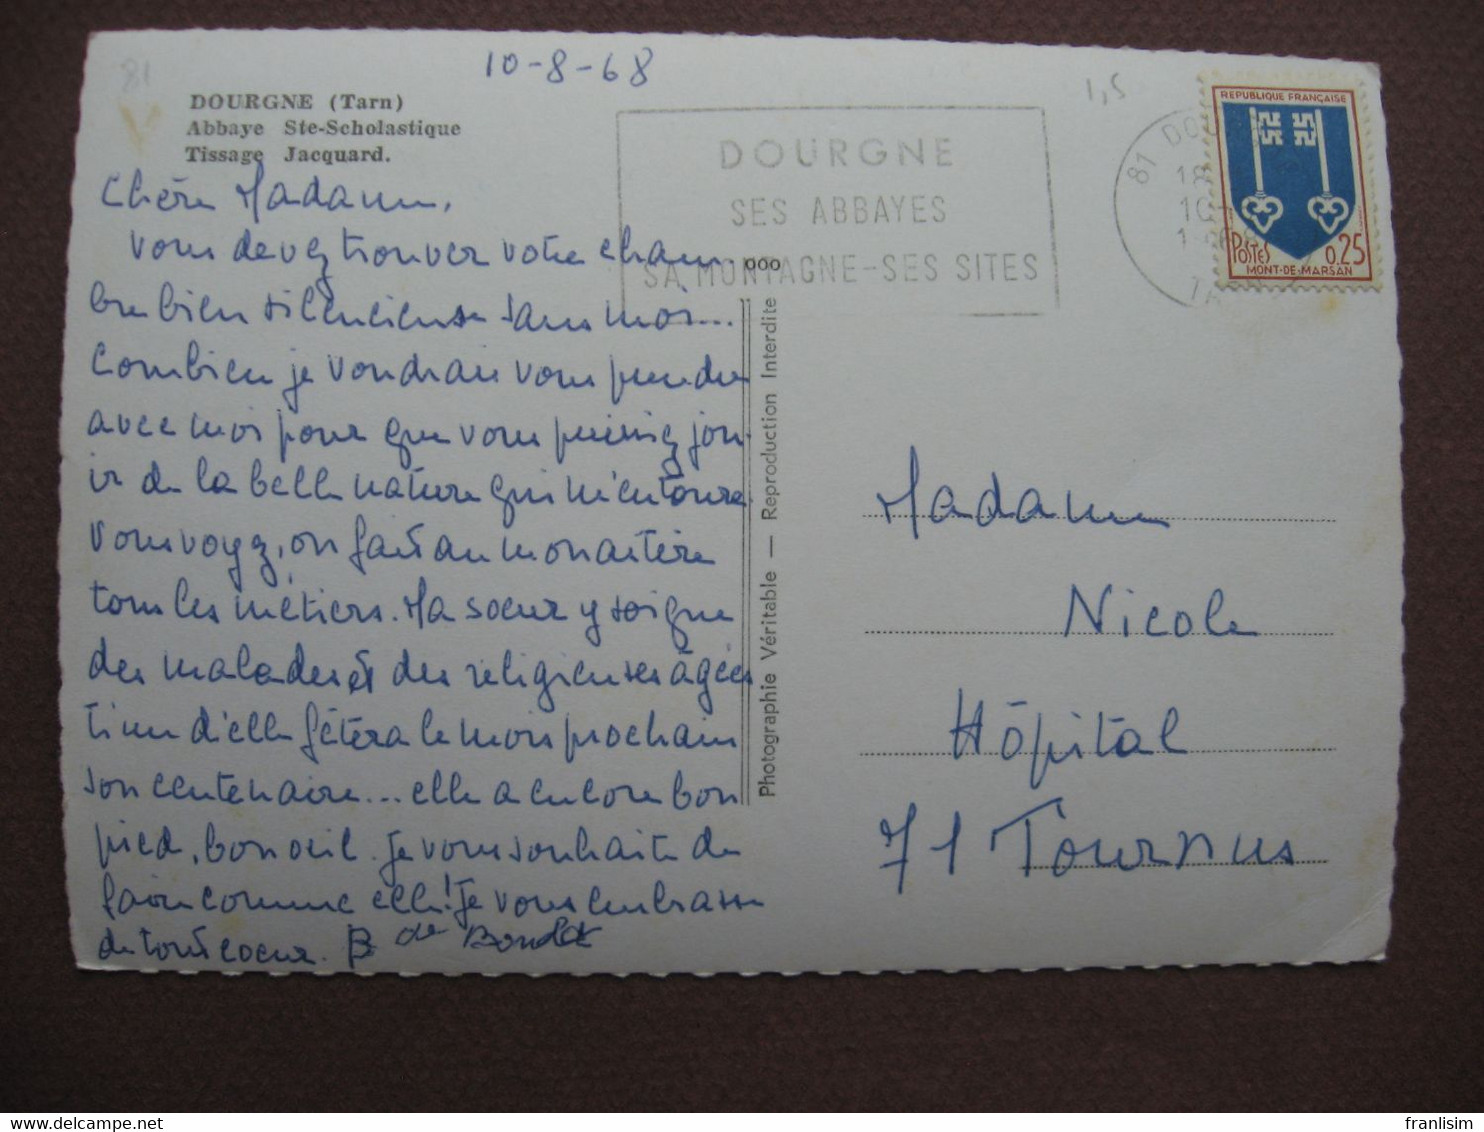 81
10-8-68
1,5
DOURGNE (Tarn)
Abbaye Ste-Scholastique
Tissage Jacquard.
DOURGNE
SES ABBAYES
SA MONTAGNE-SES SITES
81 DOU
18
10-
REPUBLIQUE FRANÇAISE
POSTES 0.25
MONT-DE-MARSAN
Chère Madame,
vous devez trouver votre cham-
bre bien silencieuse sans moi...
Combien je voudrais vous prendre
avec moi pour que vous puissiez jou-
ir de la belle nature qui m'entoure.
Vous voyez, on fait au monastère
tous les métiers. Ma soeur y soigne
des malades et des religieuses âgées
l'une d'elle fêtera le mois prochain
son centenaire... elle a encore bon
pied, bon oeil. Je vous souhaite de
faire comme elle! Je vous embrasse
de tout coeur. B de
ooo
Photographie Véritable — Reproduction Interdite
Madame
Nicole
Hôpital
71 Tournus
franlisim